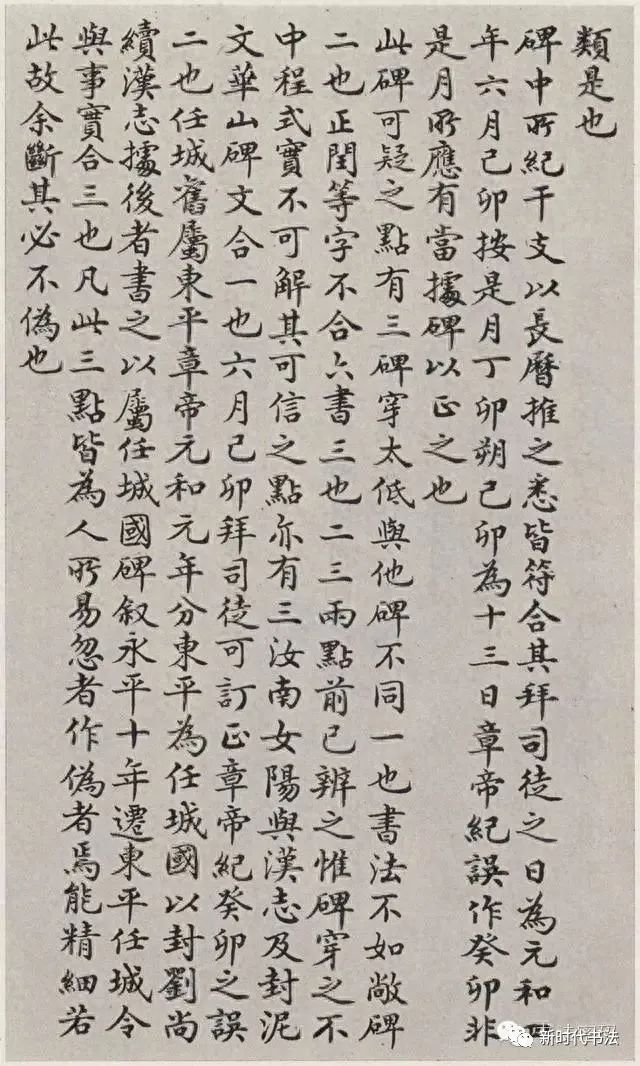 類是也
碑中所紀干支以長曆推之悉皆符合其拜司徒之日為元和四
年六月己卯按是月丁卯朔己卯為十三日章帝紀誤作癸卯非
是月所應有當據碑以正之也
此碑可疑之點有三碑穿太低與他碑不同一也書法不如敞碑
二也正閏等字不合六書三也二三兩點前已辨之惟碑穿之不
中程式實不可解其可信之點亦有三汝南女陽與漢志及封泥
文華山碑文合一也六月己卯拜司徒可訂正章帝紀癸卯之誤
二也任城舊屬東平章帝元和元年分東平為任城國以封劉尚
續漢志據後者書之以屬任城國碑叙永平十年遷東平任城令
與事實合三也凡此三點皆為人所易忽者作偽者焉能精細若
此故余斷其必不偽也
新时代书法